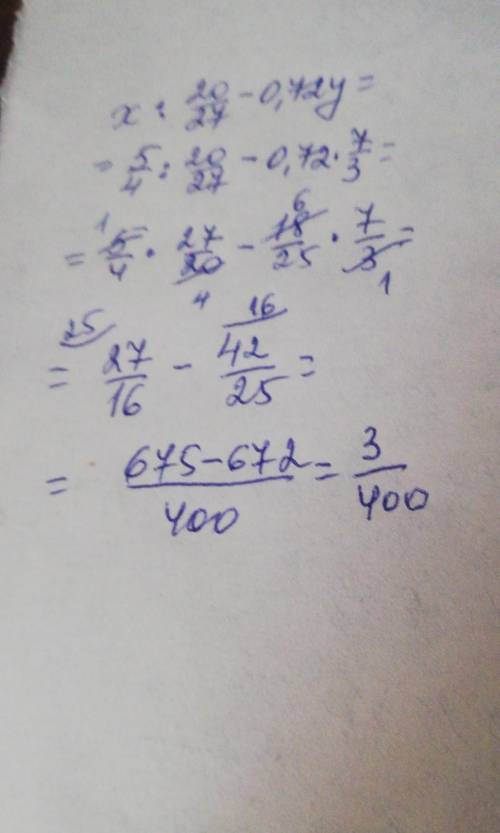 x : 20/27 - 0,72y =
= 5/4 : 20/27 - 0,72 · 7/3 =
= 5̶¹/4 · 27/2̶0̶₄ - 1̶8̶⁶/25 · 7/3̶₁ =
= ²⁵⁾27/16 - ¹⁶⁾42/25 =
= 675-672/400 = 3/400